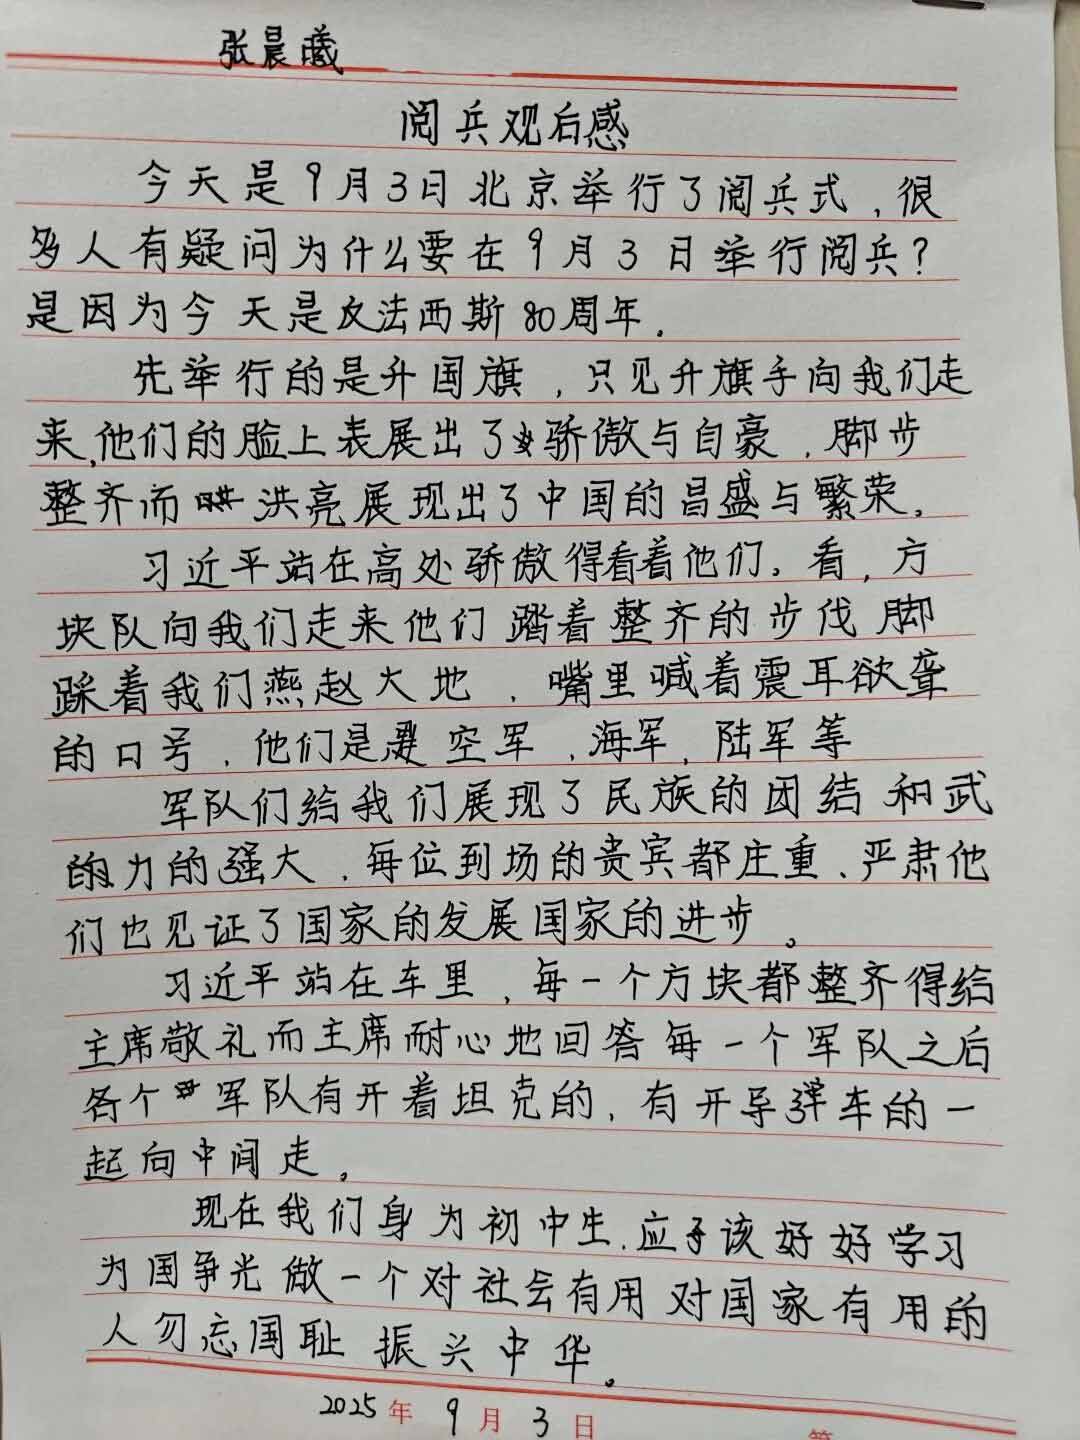 张晨曦
阅兵观后感
今天是9月3日北京举行了阅兵式,很
多人有疑问为什么要在9月3日举行阅兵?
是因为今天是反法西斯80周年.
先举行的是升国旗,只见升旗手向我们走
来,他们的脸上表展出了骄傲与自豪,脚步
整齐而洪亮展现出了中国的昌盛与繁荣。
习近平站在高处骄傲得看着他们。看,方
块队向我们走来他们踏着整齐的步伐脚
踩着我们燕赵大地,嘴里喊着震耳欲聋
的口号,他们是空军,海军,陆军等
军队们给我们展现了民族的团结和武
力的强大,每位到场的贵宾都庄重、严肃他
们也见证了国家的发展国家的进步。
习近平站在车里,每一个方块都整齐得给
主席敬礼而主席耐心地回答每一个军队之后
各个军队有开着坦克的,有开导弹车的一
起向中间走。
现在我们身为初中生,应该好好学习
为国争光做一个对社会有用对国家有用的
人勿忘国耻振兴中华。
2025年9月3日